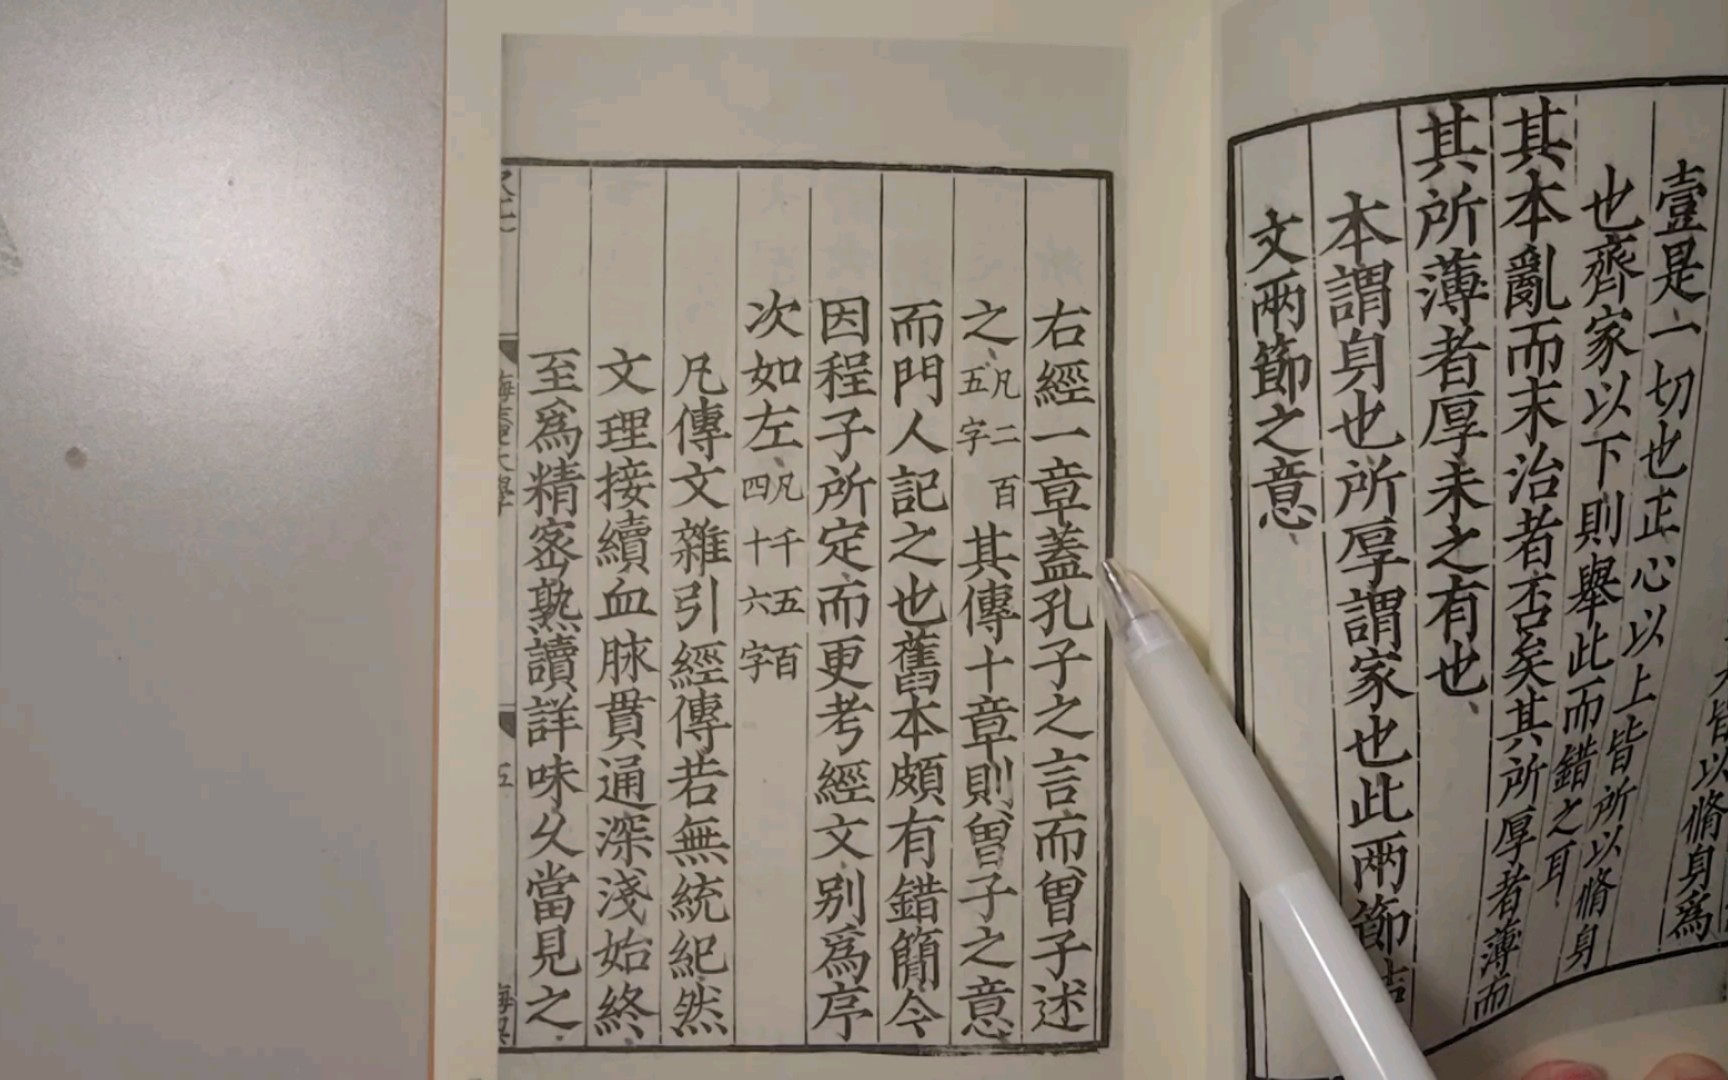 皆以脩身爲
壹是一切也正心以上皆所以脩身
也齊家以下則舉此而錯之耳
其本亂而末治者否矣其所厚者薄而
其所薄者厚未之有也
本謂身也所厚謂家也此兩節結
文兩節之意
右經一章蓋孔子之言而曾子述
之凡二百五字其傳十章則曾子之意
而門人記之也舊本頗有錯簡今
因程子所定而更考經文別爲序
次如左凡千五百四十六字
凡傳文雜引經傳若無統紀然
文理接續血脉貫通深淺始終
至爲精密熟讀詳味久當見之
大學
五